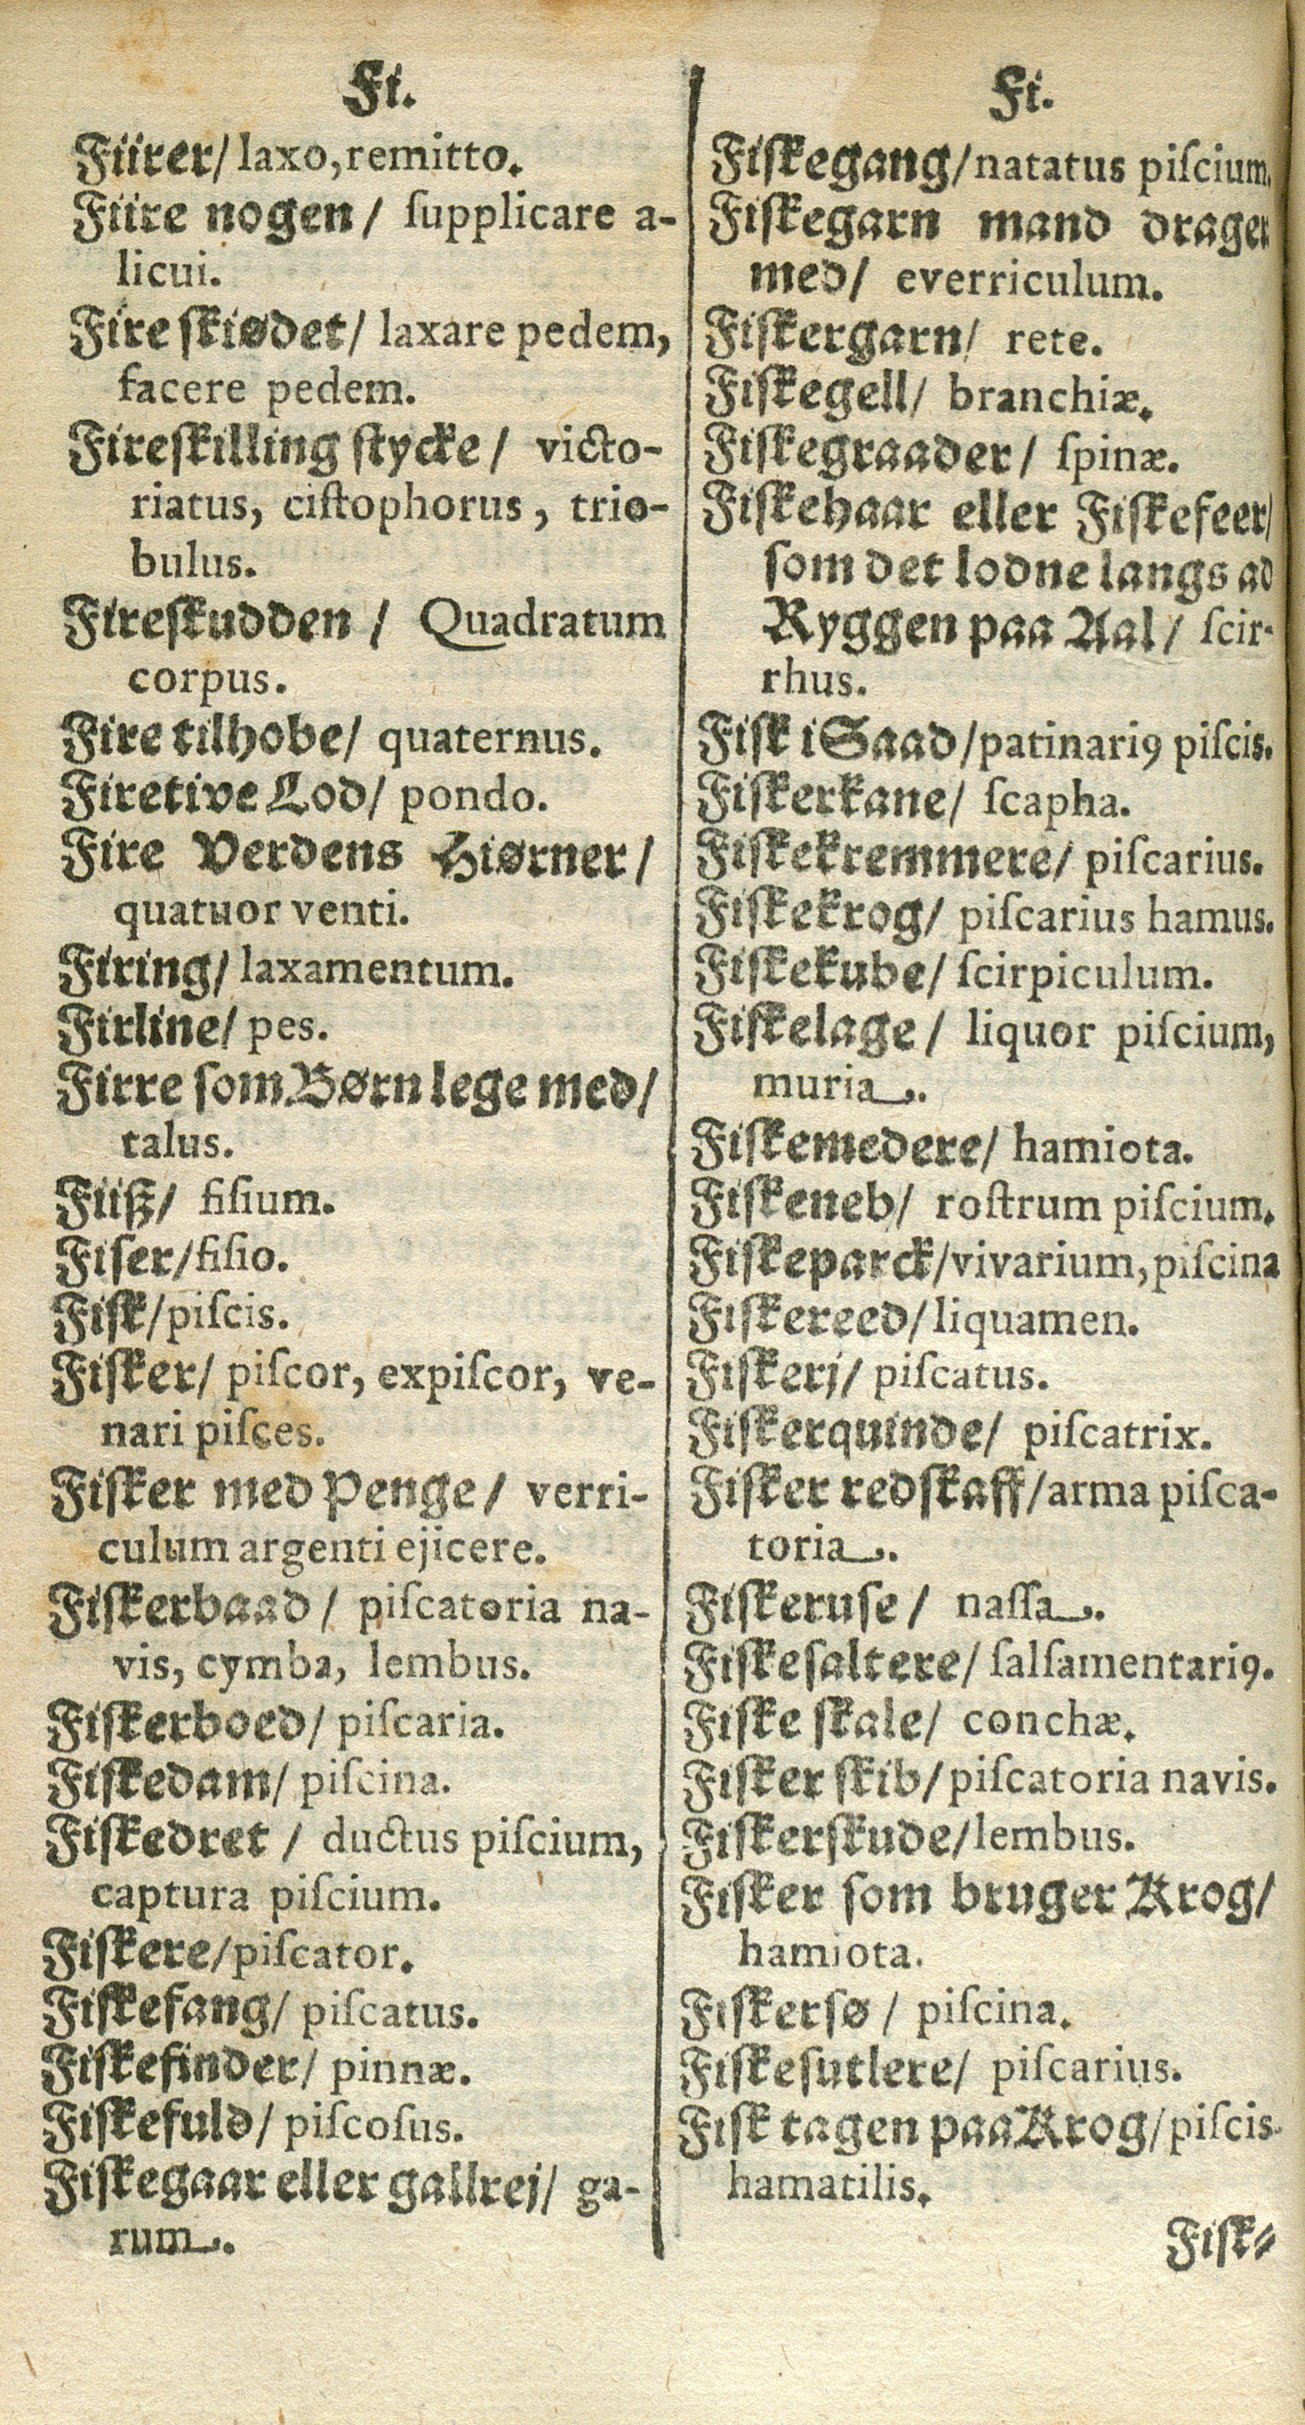 Fi.
Fiirer/ laxo, remitto.
Fiire nogen / ſupplicare a-
licui.
Fire ſkiødet/ laxare pedem,
facere pedem.
Fireſkilling ſtycke/ victo-
riatus, ciſtophorus, trio-
bulus.
Fireſkudden / Quadratum
corpus.
Fire tilhobe/ quaternus.
Firetive Lod/ pondo.
Fire Verdens Hiørner/
quatuor venti.
Firing/ laxamentum.
Firline/ pes.
Firre ſom Børn lege med/
talus.
Fiiß/ fiſium.
Fiſer/ fiſio.
Fiſk/ piſcis.
Fiſker/ piſcor, expiſcor, ve-
nari piſces.
Fiſker med Penge/ verri-
culum argenti ejicere.
Fiſkerbaad/ piſcatoria na-
vis, cymba, lembus.
Fiſkerboed/ piſcaria.
Fiſkedam/ piſcina.
Fiſkedret / ductus piſcium,
captura piſcium.
Fiſkere/piſcator.
Fiſkefang/ piſcatus.
Fiſkefinder/ pinnæ.
Fiſkefuld/ piſcoſus.
Fiſkegaar eller gallrej/ ga-
rum.
Fi.
Fiſkegang/natatus piſcium.
Fiſkegarn mand drager
med/ everriculum.
Fiſkergarn/ rete.
Fiſkegell/ branchiæ.
Fiſkegraader/ ſpinæ.
Fiſkehaar eller Fiſkefeer/
ſom det lodne langs ad
Ryggen paa Aal/ ſcir-
rhus.
Fiſk i Saad/patinariꝰ piſcis.
Fiſkerkane/ ſcapha.
Fiſkekremmere/ piſcarius.
Fiſkekrog/ piſcarius hamus.
Fiſkekube/ ſcirpiculum.
Fiſkelage/ liquor piſcium,
muria.
Fiſkemedere/ hamiota.
Fiſkeneb/ roſtrum piſcium.
Fiſkeparck/vivarium, piſcina
Fiſkereed/ liquamen.
Fiſkerj/ piſcatus.
Fiſkerquinde/ piſcatrix.
Fiſker redſkaff/arma piſca-
toria.
Fiſkeruſe/ naſſa.
Fiſkeſaltere/ ſalſamentariꝰ.
Fiſke ſkale/ conchæ.
Fiſker ſkib/ piſcatoria navis.
Fiſkerſkude/lembus.
Fiſker ſom bruger Krog/
hamiota.
Fiſkerſø / piſcina.
Fiſkeſutlere/ piſcarius.
Fiſk tagen paa Krog/ piſcis
hamatilis.
Fiſk⸗